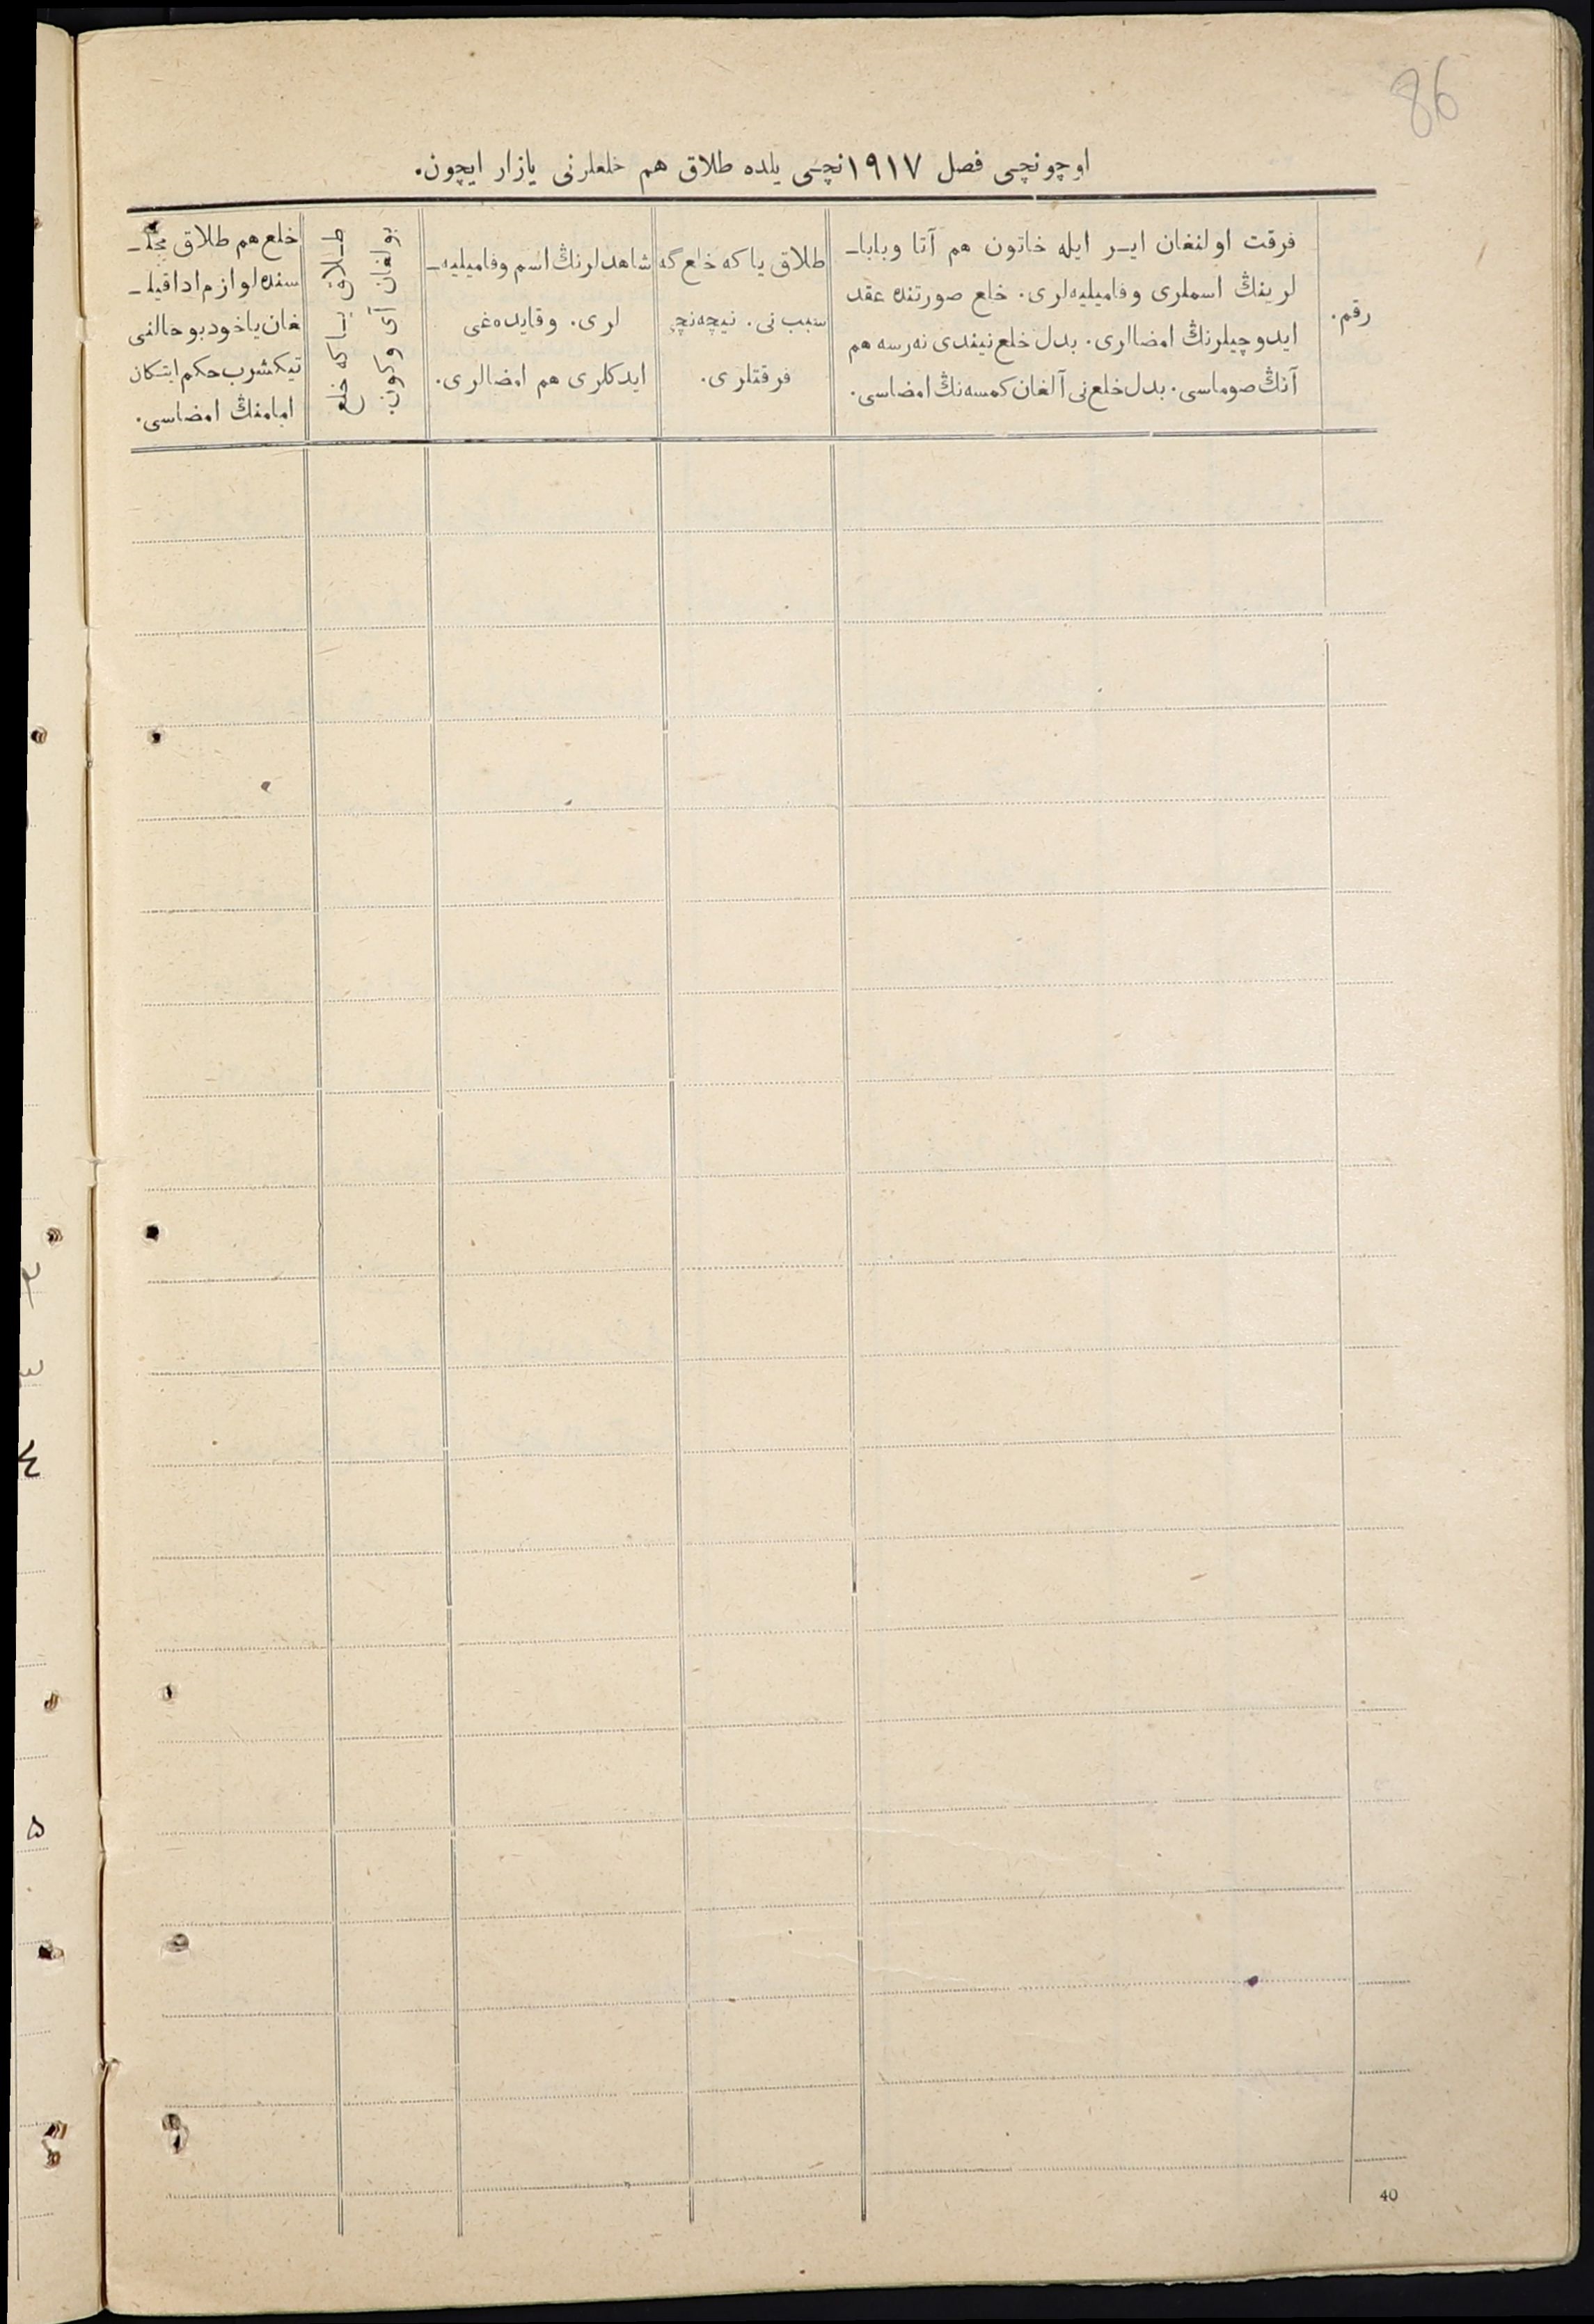 86
اوچونچی فصل ۱۹۱۷نچی یلده طلاق هم خلعلرنی یازار ایچون.
رقم.
فرقت اولنغان ایـر ایله خاتون هم آتا وبابا‌ـ
لرینڭ اسملری وفامیلیه‌لری. خلع صورتنده عقد
ایدوچیلرنڭ امضالری. بدل خلع نیندی نه‌رسه هم
آنڭ صوماسی. بدل خلع نی آلغان کمسه‌نڭ امضاسی.
طلاق یا که خلع گه
سبب نی. نیچه‌نچی
فرقتلری.
شاهدلرنڭ اسم وفامیلیه‌ـ
لری. وقایده‌غی
ایدکلری هم امضالری.
طـلاق یـا که خلع
بولغان آی وکون.
خلع هم طلاق مجلـ
سنده لوازم ادا قیلـ
غان یاخود بو حالنی
تیکشرب حکم ایتکان
امامنڭ امضاسی.
۵
40